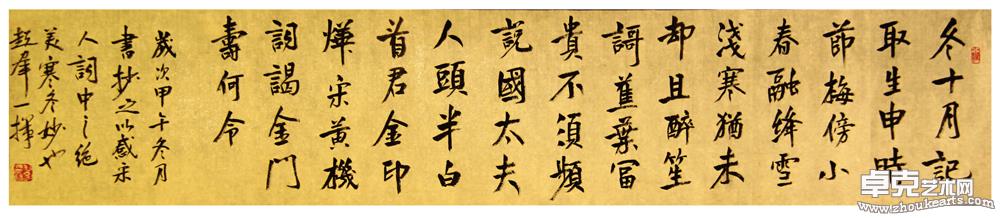 冬十月記
取生申時
節梅傍小
春融絳雪
淺寒猶未
却且醉笙
謌蕉葉冨
貴不須頻
說國太夫
人頭半白
首君金印
燁宋黃機
詞謁金門
壽何令
歲次甲午冬月
書抄之以感宋
人詞中之絕
美寒冬妙也
超群一揮
卓克艺术网
www.zhoukearts.com